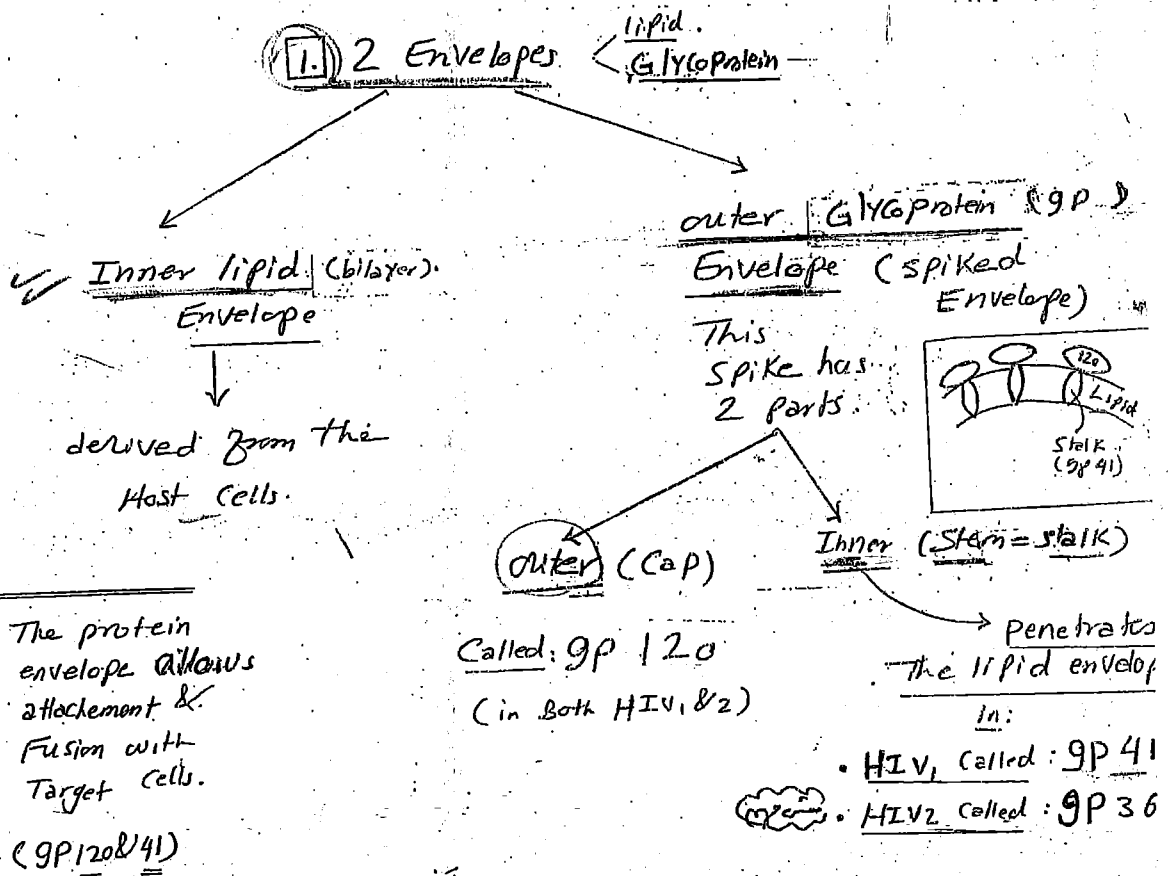 1. 2 Envelopes
lipid.
Glycoprotein
Inner lipid (bilayer).
Envelope
derived from the
Host Cells.
outer Glycoprotein (gp)
Envelope (spiked
Envelope)
This
spike has
2 parts.
120
Lipid
Stalk
(gp 41)
outer (Cap)
Called: gp 120
(in Both HIV1 & 2)
Inner (Stem = stalk)
penetrates
The lipid envelop
in:
• HIV1 Called: gp 41
• HIV2 Called: gp 36
The protein
envelope allows
attachement &
Fusion with
Target Cells.
(gp 120 & 41)